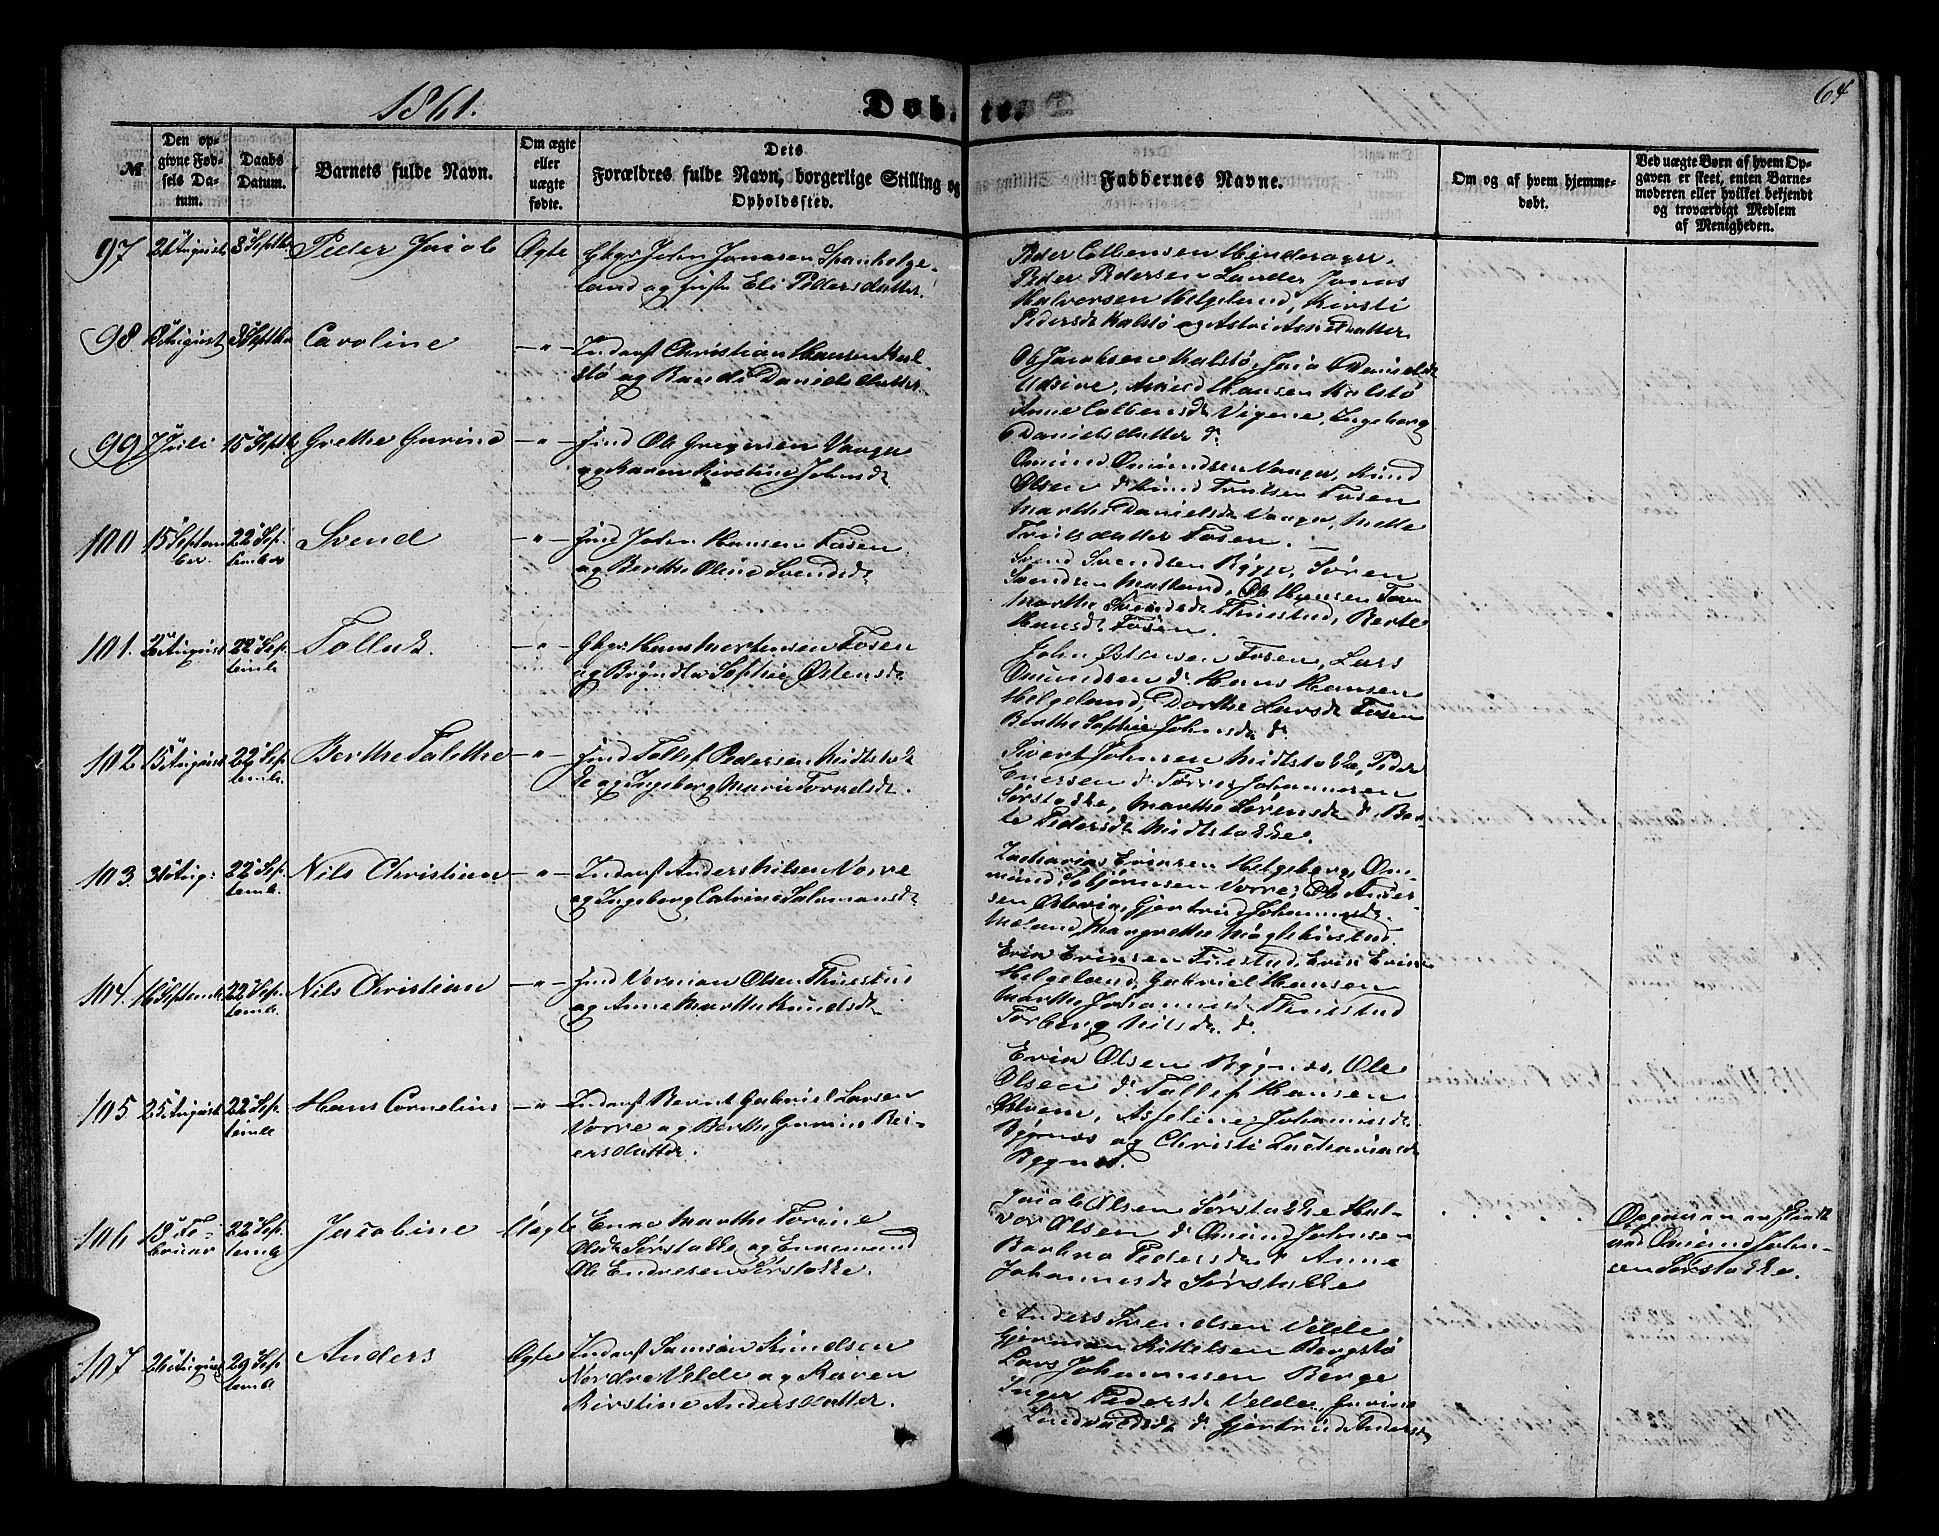 1861. Døbte. 64
№
Den opgivne Fødsels Datum.
Daabs Datum.
Barnets fulde Navn.
Om ægte eller uægte fødte.
Dets Forældres fulde Navn, borgerlige Stilling og Opholdssted.
Faddernes Navne.
Om og af hvem hjemmedøbt.
Ved uægte Børn af hvem Opgaven er skeet, enten Barnemoderen eller hvilket bekjendt og troværdigt Medlem af Menigheden.
97 21 August 8 Septbr Peder Jacob Ægte Gbgr John Jonassen Spanhelge-
land og Eli Pedersdatter.
Peder Colbensen Hinderager,
Peder Pedersen Sander Jonas
Halvorsen Helgeland, Kirsti
Pedersdr Kalstø og
98 August 8 Septbr Caroline — " — Inderst Christian Hansen Kal-
stø og Danielsdatter.
Ole Jacobsen Kalstø, Danielsdr
Hansen Kalstø
Anne Colbensdr Vigene, Ingeborg
Danielsdatter do
99 7 Juli 15 Septb Grethe Gurine — " — Ole Gregersen Vaager
og Karen Kirstine Johnsdr
Omund Omundsen Vaager, Knud
Olsen do Knud Fosen
Marthe Danielsdr Vaage, Mette
Fosen.
100 15 September 22 September Svend — " — John Hansen Fosen
og Berthe Oline Svendsdr
Svend Svendsen Bygge, Sören
Svendsen Matland, Ole Hansen Fosen
Marthe Svendsdr Thuestad, Berte
Hansdr Fosen.
101. August 22 Septembr — " — Gbgr Hans Mortensen Fosen
og Sophie Østensdr
John Østensen Fosen, Lars
Omundsen do Hans Hansen
Helgeland, Dorthe Larsdr Fosen
Berthe Sophie Johnsdr do
102 15 August 22 Septembr Berthe Talethe — " — Tollef Pedersen Midtstok-
ke og Ingeborg Marie
Sivert Johnsen Midtstokke, Peder
Enersen do Johannesen
Sørstokke, Marthe Sörensdr do Ber-
te Pedersdr Midtstokke.
103. 31 Aug: 22 Septemb. Nils Christian — " — Inderst Anders Nilsen Vorre
og Ingeborg Catrine Salomonsdr
Zacharias Ericsen Helgeberg, Om-
und Vorre, Ole Ander-
sen Gjertrud Johannesdr
Meland, Margrethe
104. 16 Septembr 22 Septemb. Nils Christian — " — Olsen Thuestad
og Anne Marthe Knudsdr
Erik Ericsen Tuestad, Erik
Helgeland, Gabriel Hansen
Marthe Johannesdr Thuestad
Torborg Nilsdr do
105 25 August 22 Septembr Hans Cornelius — " — Inderst Bernt Gabriel Larsen
Vorre og Berthe Gurine Rei-
ersdatter.
Erik Olsen Bygnes, Ole
Olsen do Tollef Hansen
Asseline Johannesdr
Bygnes og Christi Zachariasdr
Bygnes.
106 18 Februar 22 Septemb Jacobine Uægte Enke Marthe Torine
Olsdr Sørstokke og Enkemand
Ole Endresen Sørstokke.
Jacob Olsen Sørstokke Hal-
vor Olsen do Omund Johnsen
Barbro Pedersdr do Anne
Johannesdr Sørstokke
Opgaven
ved Omund John-
sen Sørstokke.
107 26 August 29 Septembr Anders Ægte Inderst Samson Knudsen
Nordre Velde og Karen
Kirstine Andersdatter.
Anders Svendsen Velde
Gjerman Kittelsen Bergstø
Lars Johannesen Berge
Inger Pedersdr Velde,
do Gjertrud Andersdr